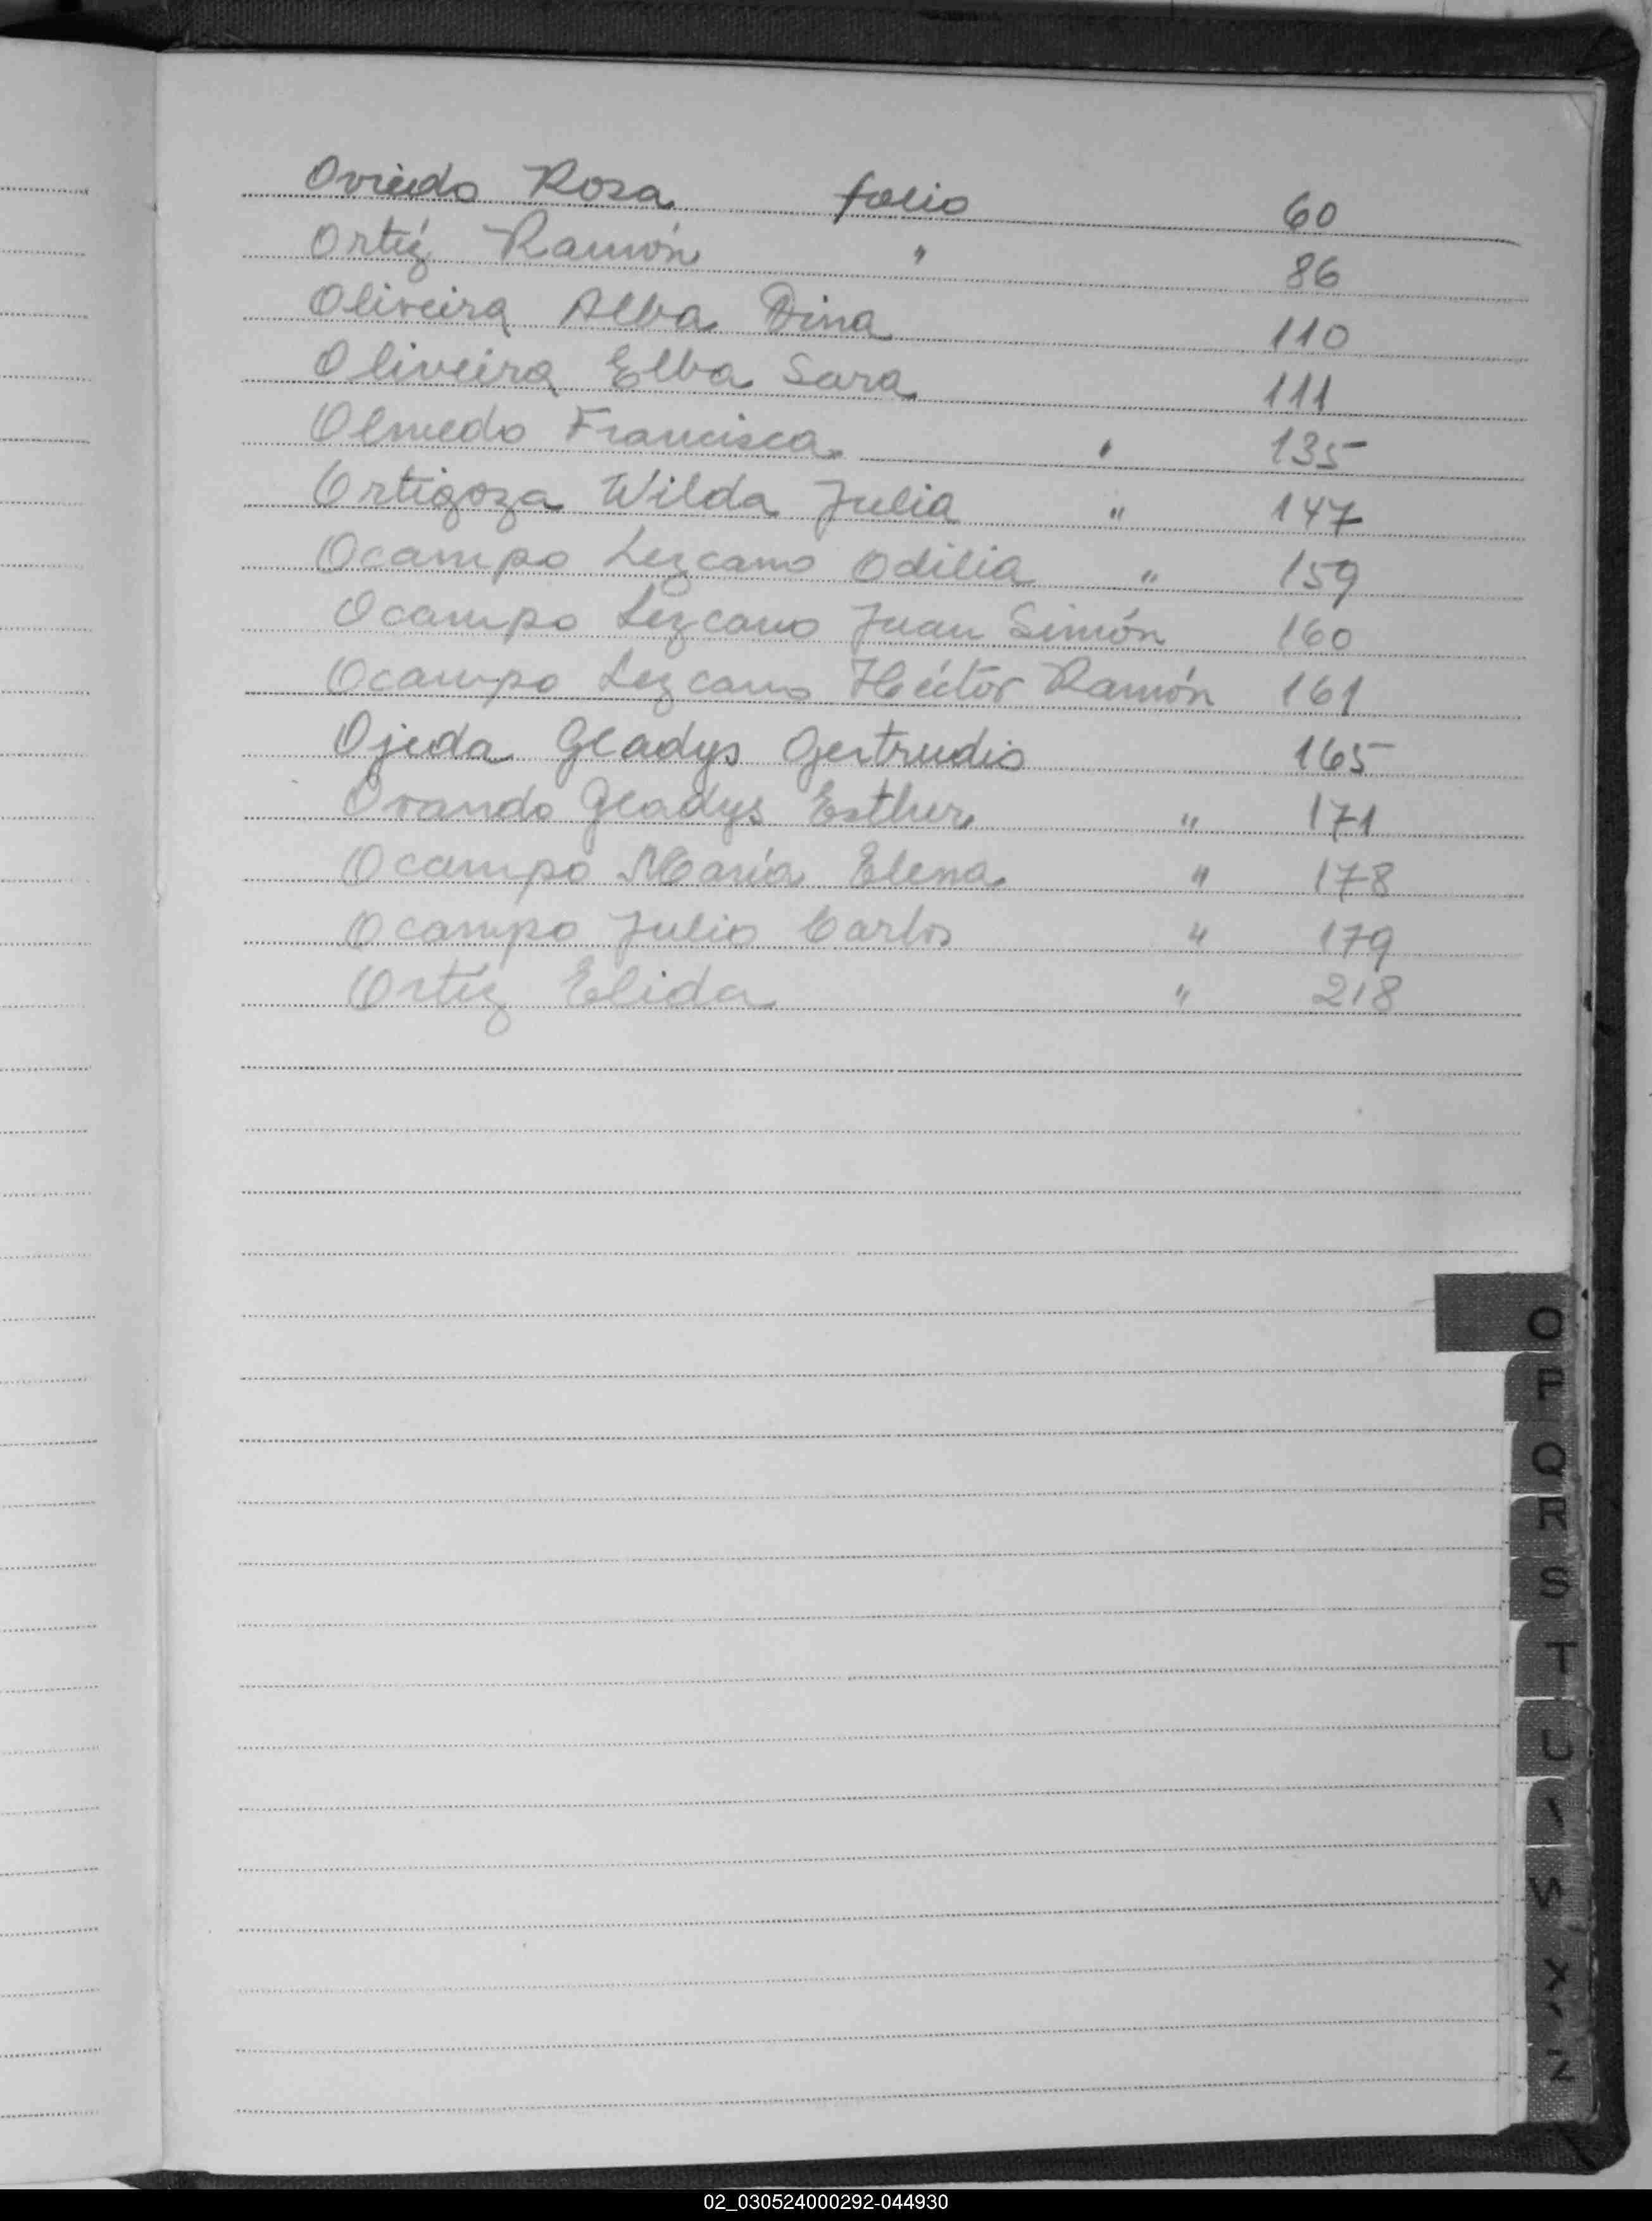 Oviedo Rosa folio 60
Ortíz Ramón " 86
Oliveira Alba Dina 110
Oliveira Elba Sara 111
Olmedo Francisca " 135
Ortigoza Wilda Julia " 147
Ocampo Lezcano Odilia " 159
Ocampo Lezcano Juan Simón 160
Ocampo Lezcano Héctor Ramón 161
Ojeda Gladys Gertrudis 165
Ovando Gladys Esther " 171
Ocampo María Elena " 178
Ocampo Julio Carlos " 179
Ortíz Elida " 218
O
P
Q
R
S
T
U
W
X
Z
02_030524000292-044930